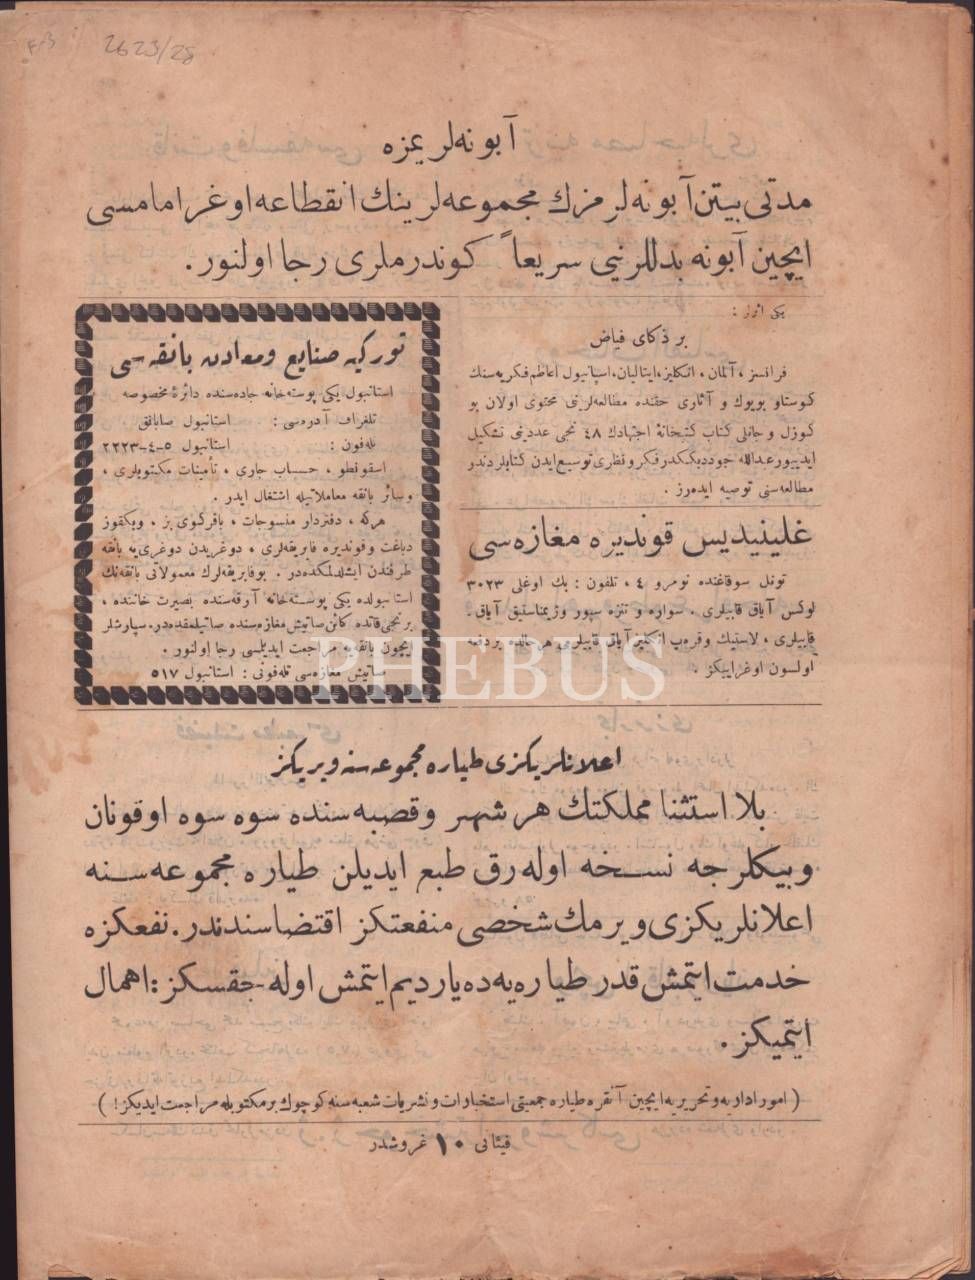 2623/28
آبونه‌لریمزه
مدتی بیتن آبونه‌لرمزك مجموعه‌لرینك انقطاعه اوغرامامسی
ایچین آبونه بدللرینی سریعاً كوندرملری رجا اولنور.
یكی اثرلر :
بر ذكای فیاض
فرانسز ، آلمان ، انكلیز، ایتالیان، اسپانیول اعاظم فكریه سنك
كوستاو بویوك و آثاری حقنده مطالعه‌لرینی محتوی اولان بو
كوزل و جانلی كتاب كتبخانهٔ اجتهادك ٤٨ نجی عددینی تشكیل
ایدییور عبدالله جودت بكك در فكر و نظری توسیع ایدن كتابلردندر
مطالعه‌سنی توصیه ایدەرز .
غلینیدیس قوندیره مغازه‌سی
تونل سوقاغنده نومرو ٤ ، تلفون : بك اوغلی ٣٠٢٣
لوكس آیاق قابیلری . سواره و تنزه سپور و ژیمناستیق آیاق‌ـ
قابیلری ، لاستیك و قره‌پ انكلیز آیاق قابیلری هر حالده بر دفعه
اولسون اوغراییكز .
توركیه صنایع ومعادن بانقه‌سی
استانبول یكی پوسته‌خانه جاده‌سنده دائرهٔ مخصوصه
تلغراف آدره‌سی : استانبول صابانق
تله‌فون : استانبول ٥-٤-٢٢٢٣
اسقونطو ، حساب جاری ، تأمینات مكتوبلری ،
وسائر بانقه معاملاتیله اشتغال ایدر .
هركه ، دفتردار منسوجات ، باقركوی بز ، وبیكقوز
دباغت وقوندیره فابریقه‌لری ، دوغریدن دوغری‌یه بانقه
طرفندن ایشلدلمكده‌در . بو فابریقه‌لرك معمولاتی بانقه‌نك
استانبولده یكی پوسته‌خانه آرقه‌سنده بصیرت خاننده ،
برنجی قاتده كائن صاتیش مغازه‌سنده صاتیلمقده‌در. سپارشلر
ایچون بانقه‌یه مراجعت ایدیلمسی رجا اولنور .
صاتیش مغازه‌سی تله‌فونی : استانبول ٥١٧
PHEBUS
اعلانلریكزی طیاره مجموعه سنه ویریكز
بلا استثنا مملكتك هر شهر وقصبه‌سنده سوه سوه اوقونان
وبیكلرجه نسخه اوله‌رق طبع ایدیلن طیاره مجموعه‌سنه
اعلانلریكزی ویرمك شخصی منفعتكز اقتضاسندندر. نفعكزه
خدمت ایتمش قدر طیاره‌یه ده یاردیم ایتمش اوله‌جقسكز : اهمال
ایتمیكز .
( امور اداریه وتحریریه ایچین آنقره طیاره جمعیتی استخبارات ونشریات شعبه سنه كوچوك بر مكتوبله مراجعت ایدیكز! )
فیئاتی ١٠ غروشدر